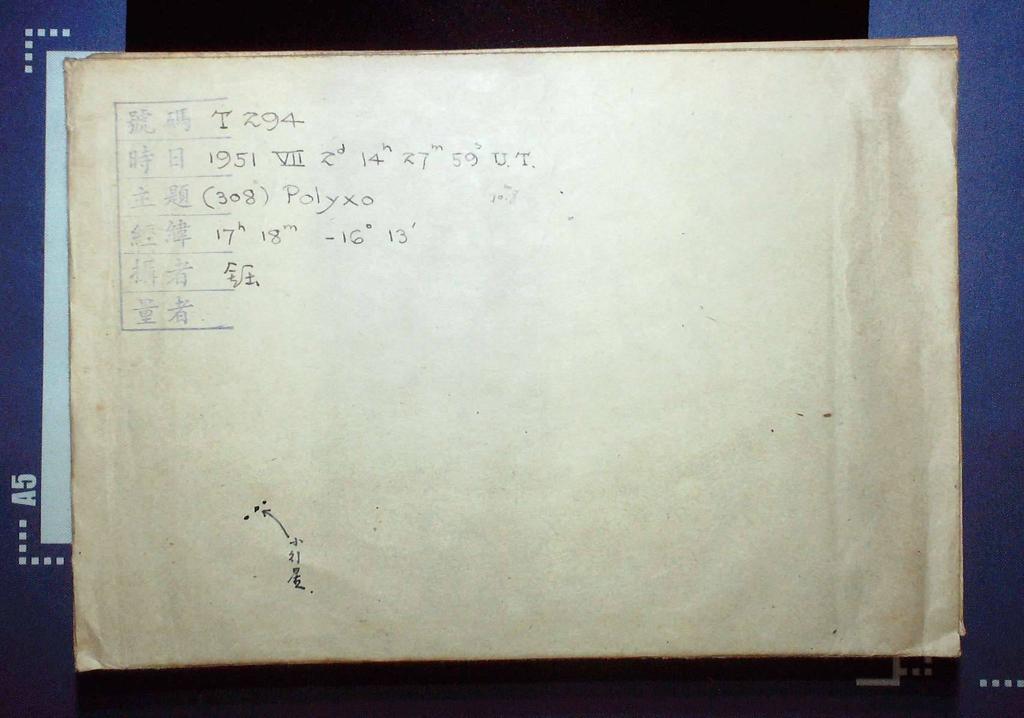 號碼 T 294
時日 1951 VII 2d 14h 27m 59s U.T.
主題 (308) Polyxo
經緯 17h 18m -16° 13′
攝者
量者
小行星.
A5